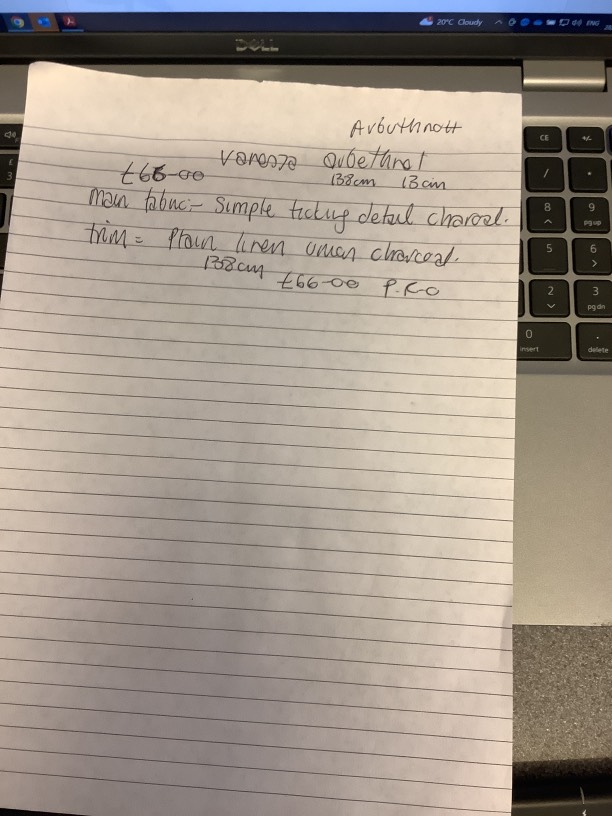 20°C Cloudy ENG
DELL
Arbuthnott
Vanessa Aubethnot
£66-00 138cm 13cm
Main fabric:- Simple ticking detail charcoal.
trim = Plain linen union charcoal.
138cm £66-00 P.R.O
CE +/-
£
3
/ *
8 9
pg up
5 6
2 3
pg dn
0 .
insert delete